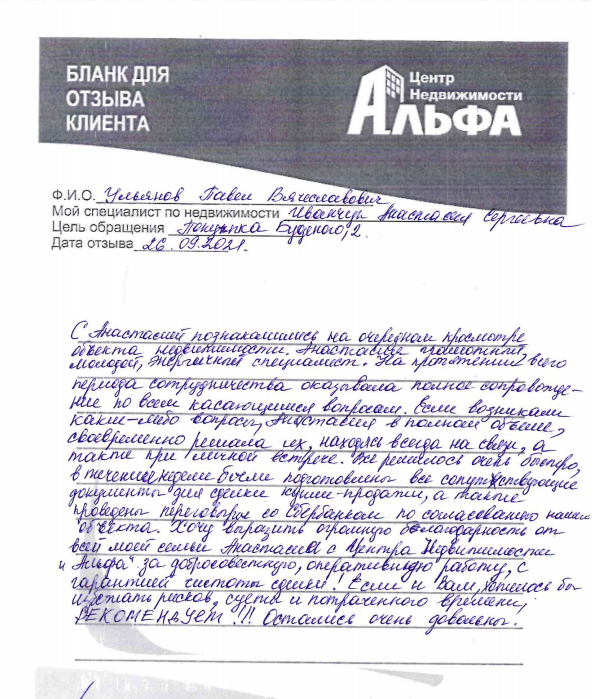 БЛАНК ДЛЯ
ОТЗЫВА
КЛИЕНТА
Центр
Недвижимости
АЛЬФА
Ф.И.О. Ульянов Павел Вячеславович
Мой специалист по недвижимости Иванчук Анастасия Сергеевна
Цель обращения Покупка Буденого, 2.
Дата отзыва 26.09.2021.
С Анастасией познакомились на очередном просмотре
объекта недвижимости. Анастасия грамотный,
молодой, энергичный специалист. На протяжении всего
периода сотрудничества оказывала полное сопровожде-
ние по всем касающимся вопросам. Если возникали
какие-либо вопросы, Анастасия в полном объеме,
своевременно решала их, находясь всегда на связи, а
также при личной встрече. Все решилось очень быстро,
в течение недели были подготовлены все сопутствующие
документы для сделки купли-продажи, а также
проведены переговоры со Сбербанком по согласованию нашего
объекта. Хочу выразить огромную благодарность от
всей моей семьи Анастасии с Центра Недвижимости
"Альфа" за добросовестную, оперативную работу, с
гарантией чистоты сделки! Если и Вам, хотелось бы
избежать рисков, суеты и потраченного времени,
РЕКОМЕНДУЕМ!!! Остались очень довольны.